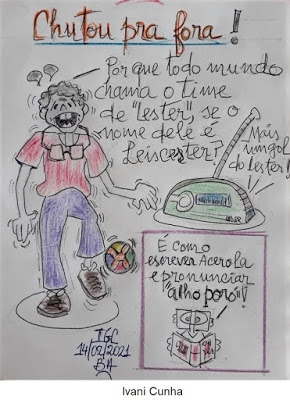 Chutou pra fora!
Por que todo mundo
chama o time
de "Lester", se o
nome dele é
Leiscester?
Mais
um gol
do Lester!
É como
escrever Acerola
e pronunciar
"alho poró"!
IGC
14/02/2021
BH
Ivani Cunha